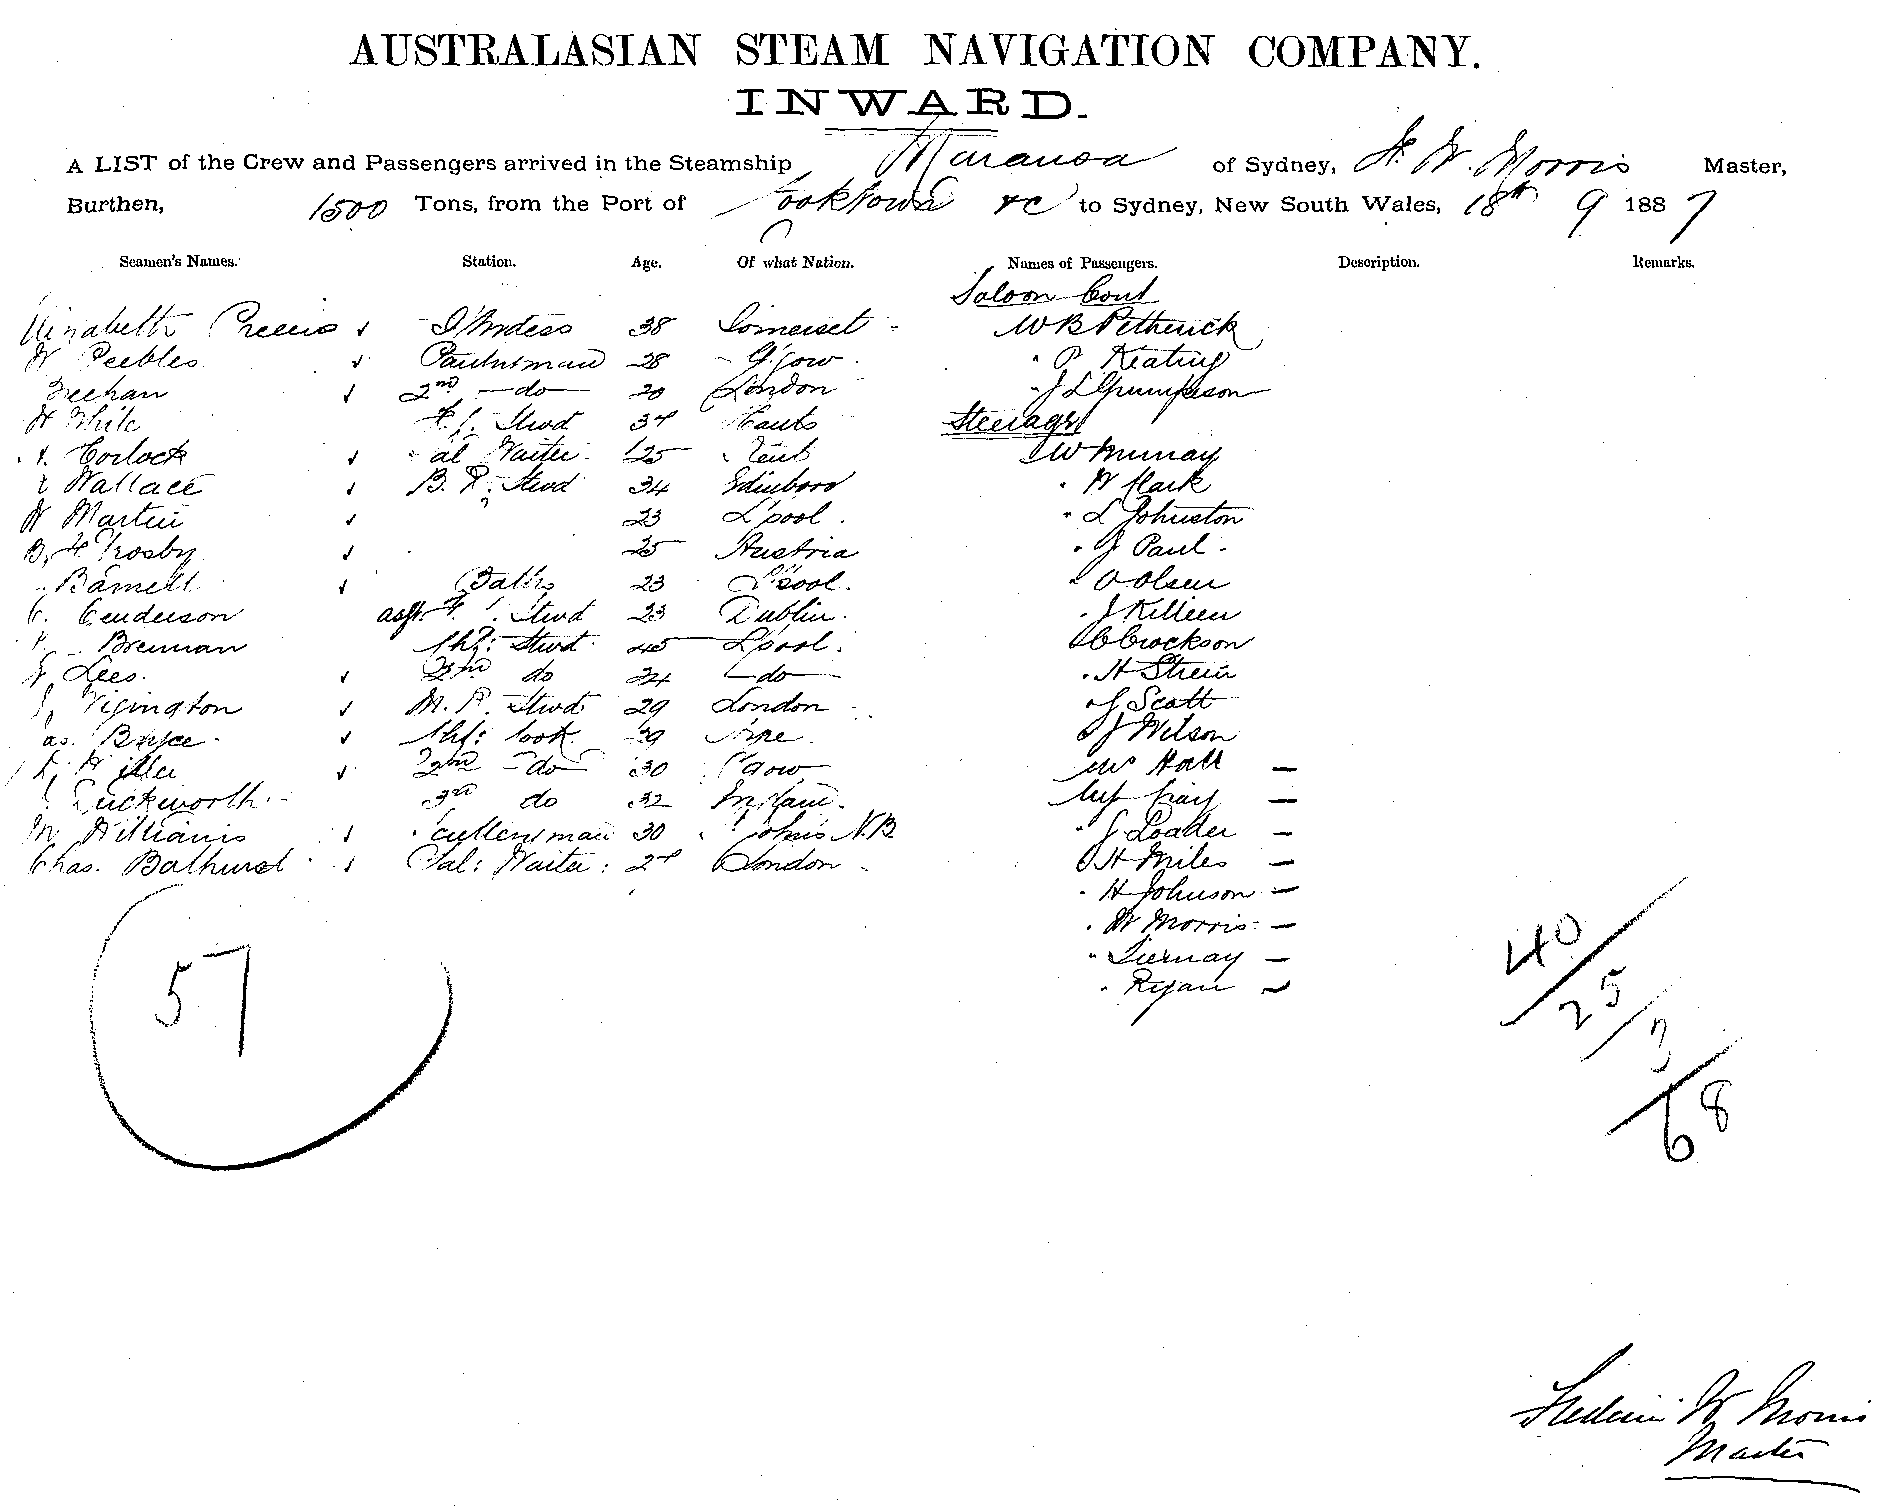 AUSTRALASIAN STEAM NAVIGATION COMPANY.
INWARD.
A LIST of the Crew and Passengers arrived in the Steamship Maranoa of Sydney, F. W. Morris Master,
Burthen, 1500 Tons, from the Port of Cooktown &c to Sydney, New South Wales, 18th 9 1887
Seamen's Names. Station. Age. Of what Nation. Names of Passengers. Description. Remarks.
Saloon Cont
Elizabeth S'wdess 38 Somerset W B Petherick
W Peebles 28 G'gow P Keating
2nd do 20 London J L
H White Stwd Hants Steerage
Corlock Waiter 25 Kent W Murray
Wallace B. R. Stwd 34 Edinboro W Clark
W Martin 23 L'pool L Johnston
B. H Crosby 25 Austria J Paul
Barnett Baths 23 L'pool O Olsen
Henderson asst F. C. Stwd 23 Dublin J Killeen
Brennan Chf: Stwd 45 L'pool C Crockson
Lees 2nd do 24 do H Strein
Vigington M. R. Stwd 29 London J Scott
Chf: Cook 39 J Wilson
2nd do 30 G'gow Mrs Hall
Duckworth 3rd do 32 Gray
M Williams Scullerman 30 St Johns N.B J Loader
Chas. Bathurst Sal: Waiter 24 London H Miles
H Johnson
W Morris
Tiernay
Ryan
57
40/25/3/68
W Morris
Master